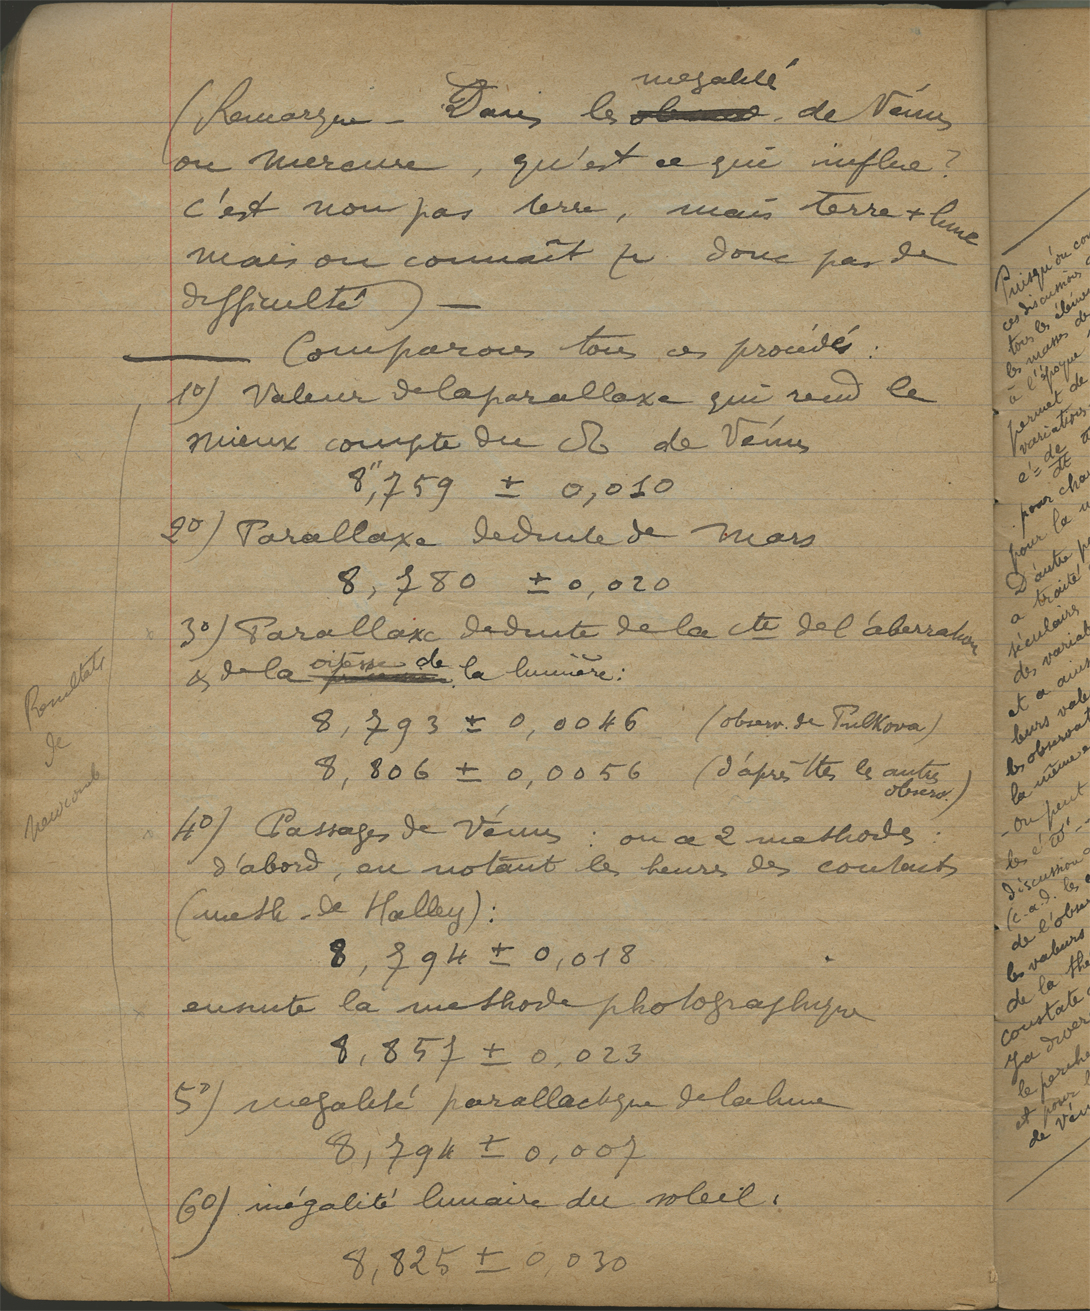 (Remarque – Dans les inégalité de Vénus
ou Mercure, qu'est ce qui influe?
c'est non pas terre, mais terre + lune
mais on connaît μ donc pas de
difficulté) —
Comparons tous ces procédés :
1º) Valeur de la parallaxe qui rend le
mieux compte du ☊ de Vénus
8",759 ± 0,010
2º) Parallaxe déduite de Mars
8,780 ± 0,020
3º) Parallaxe déduite de la cte de l'aberration
& de la vitesse de la lumière :
8,793 ± 0,0046 (observ. de Pulkova)
8,806 ± 0,0056 (d'après ttes les autres
observ.)
4º) Passages de Vénus : on a 2 méthodes :
d'abord, en notant les heures des contacts
(meth. de Halley) :
8,794 ± 0,018
ensuite la methode photographique
8,857 ± 0,023
5º) inégalité parallactique de la lune
8,794 ± 0,007
6º) inégalité lunaire du soleil.
8,825 ± 0,030
Resultats
de
Newcomb
Puisqu'on
ces discussions
tous les
les masses de
à l'époque
permet de
variations
pour
pour la
D'autre
a traité
séculaire
des
et a ainsi
leurs
les
la même
on peut
les
discussion
(c.a.d. les
de l'
les valeurs
de la
constate
le
et pour
de